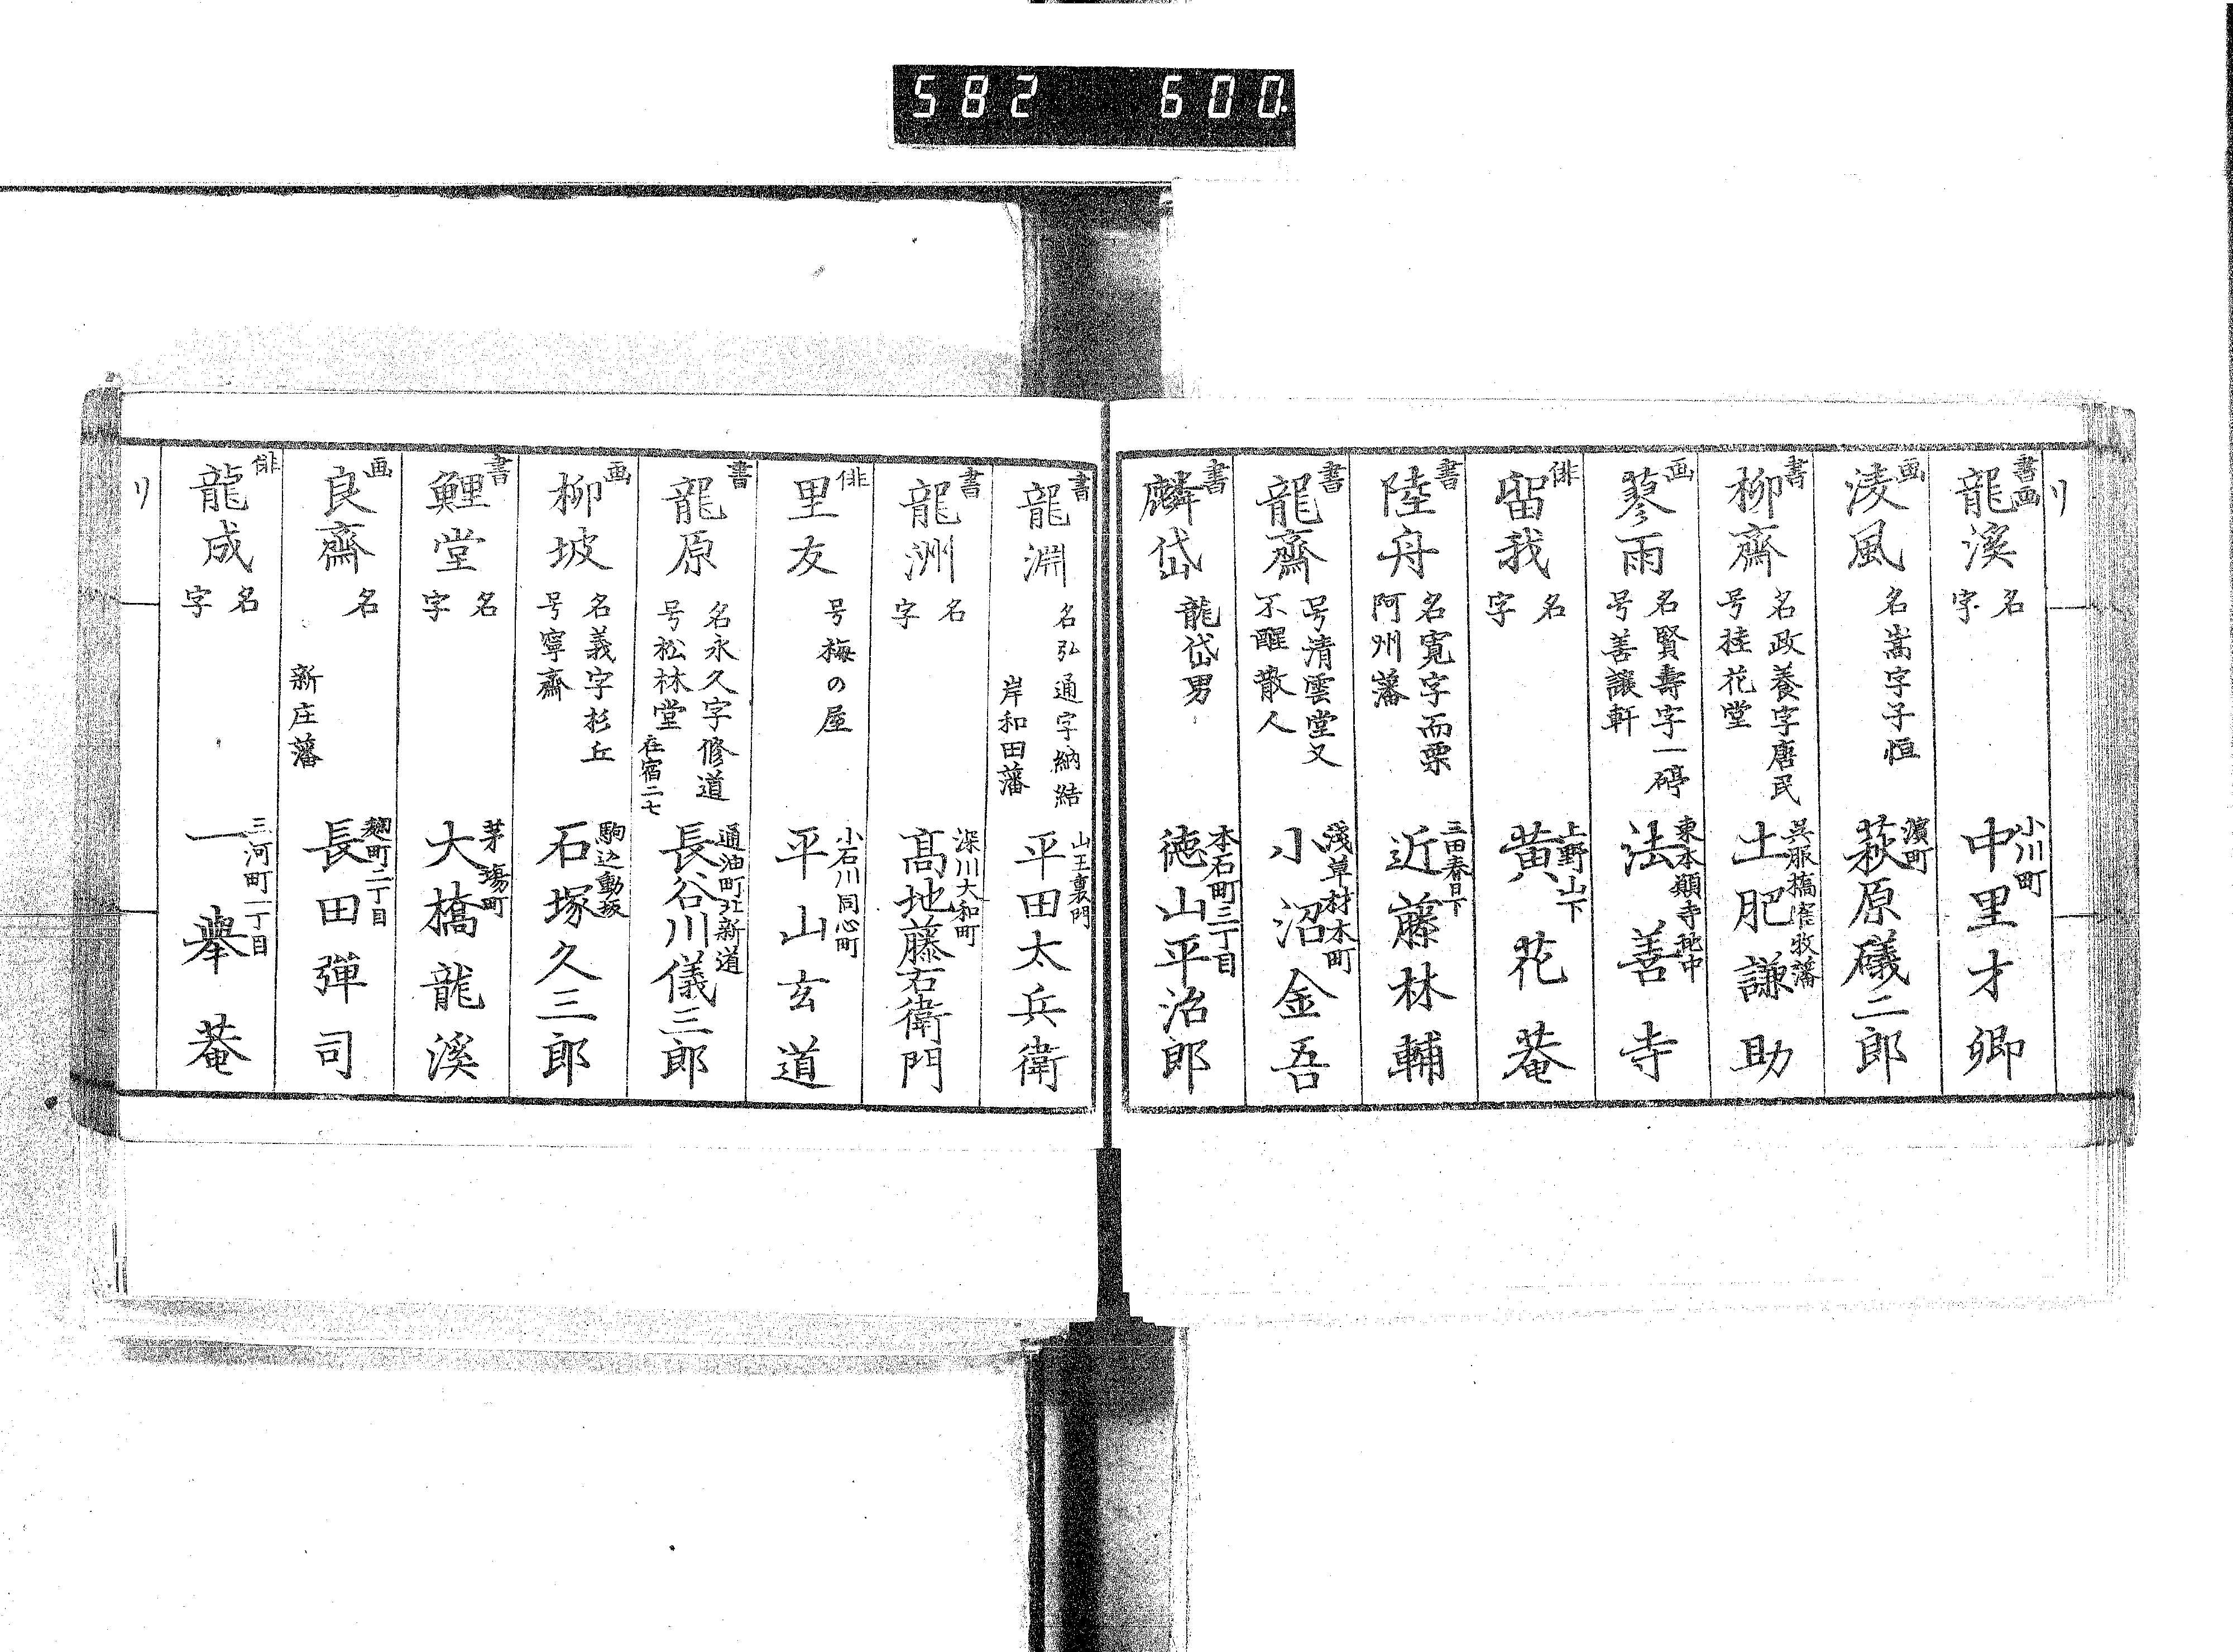 582 600.
リ
書画
龍溪
名
字
小川町
中里才卿
画
淩風
名嵩字子恒
濱町
萩原礒二郎
書
柳齋
名政養字唐民
号挂花堂
呉服橋窪牧藩
土肥謙助
画
蓼雨
名賢壽字一碍
号善讓軒
東本願寺地中
法善寺
俳
留我
名
字
上野山下
黄花菴
書
陸舟
名寛字而栗
阿州藩
三田春日下
近藤林輔
書
龍齋
号清雲堂又
不醒散人
淺草材木町
小沼金吾
書
麟岱
龍岱男
本石町三丁目
徳山平治郎
書
龍淵
名弘通字納結
岸和田藩
山王裏門
平田太兵衛
書
龍洲
名
字
深川大和町
髙地藤右衛門
俳
里友
号梅の屋
小石川同心町
平山玄道
書
龍原
名永久字修道
号松林堂
在宿二七
通油町北新道
長谷川儀三郎
画
柳坡
名義字杉丘
号寧齋
駒込動坂
石塚久三郎
書
鯉堂
名
字
茅場町
大橋龍溪
画
良齋
名
新庄藩
麹町二丁目
長田彈司
俳
龍成
名
字
三河町一丁目
一擧菴
リ